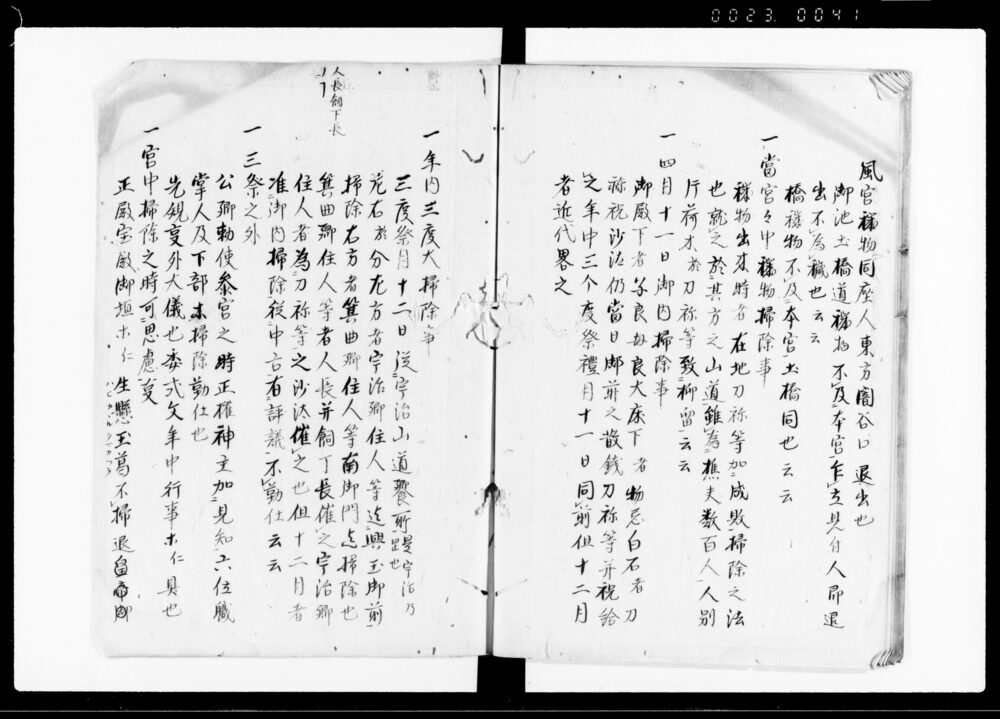 0023.0041
風宮穢物同座人東方闇谷口退出也
御池土橋道穢物不及本宮乍立見付人即退
出不為穢也云云
橋穢物不及本宮土橋同也云云
一當宮々中穢物掃除事
穢物出来時者在地刀祢等加成敗掃除之法
也就之於其方之山道雖為樵夫数百人人別
片荷木於刀祢等致抑留云云
一四月十一日御内掃除事
御殿下者子良母良大床下者物忌白石者刀
祢祝沙汰仍當日御前之散錢刀祢等并祝給
之年中三个度祭禮月十一日同前但十二月
者近代畧之
人長飼丁長
一年内三度大掃除事
三度祭月十二日従宇治山道饗所
左右於分左方者宇治郷住人等迄興玉御前
掃除右方者箕曲郷住人等南御門迄掃除也
箕曲郷住人等者人長并飼丁長催之宇治郷
住人者為刀祢等之沙汰催之也但十二月者
准御内掃除従中古有評議不勤仕云云
一三祭之外
公卿勅使参宮之時正権神主加見知六位職
掌人及下部木掃除勤仕也
先規享外大儀也委式文年中行事木仁具也
一宮中掃除之時可思慮叓
正殿宝殿御垣木仁生懸玉葛不掃退皇帝御